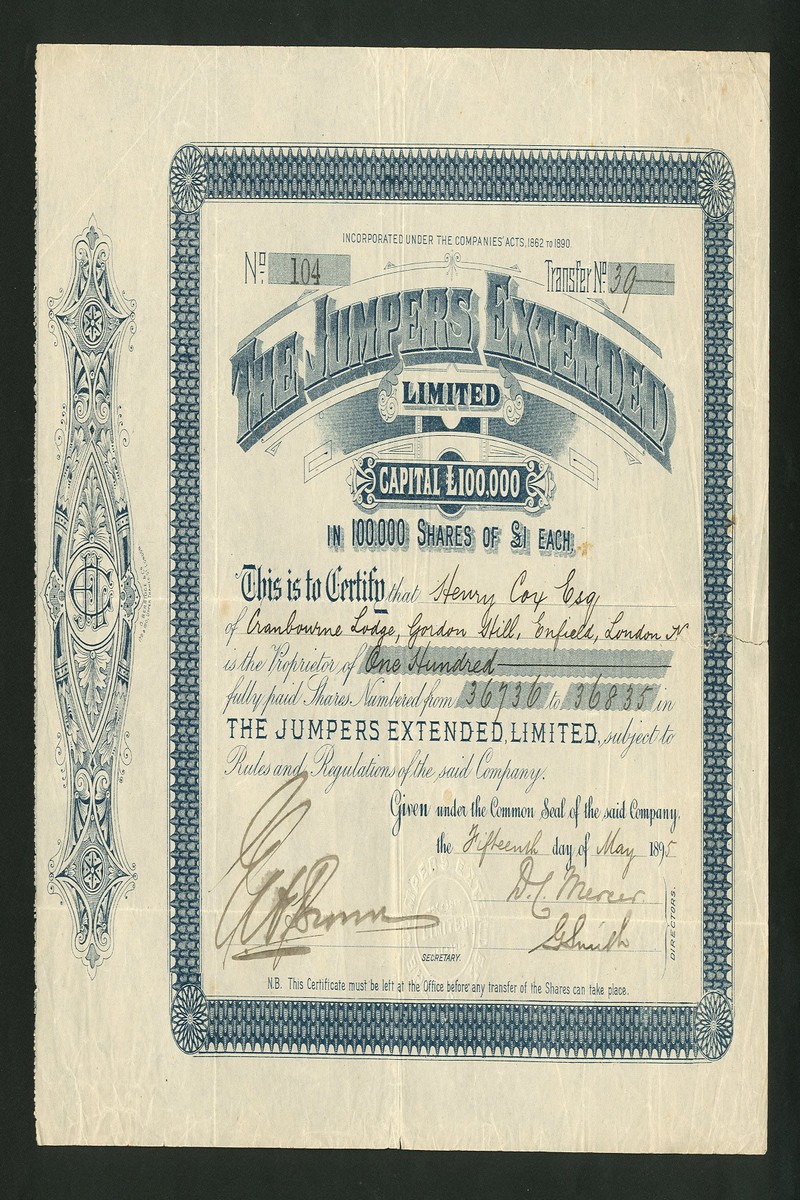 INCORPORATED UNDER THE COMPANIES' ACTS, 1862 TO 1890.
No. 104 Transfer No. 39
THE JUMPERS EXTENDED
LIMITED
CAPITAL £100,000
IN 100,000 SHARES OF £1 EACH,
This is to Certify that Henry Cox Esq
of Cranbourne Lodge, Gordon Hill, Enfield, London N
is the Proprietor of One Hundred
fully paid Shares Numbered from 36736 to 36835 in
THE JUMPERS EXTENDED, LIMITED, subject to
Rules and Regulations of the said Company.
Given under the Common Seal of the said Company,
the Fifteenth day of May 1895
D. C. Mercer
G Smith
DIRECTORS.
Brown
SECRETARY.
N.B. This Certificate must be left at the Office before any transfer of the Shares can take place.